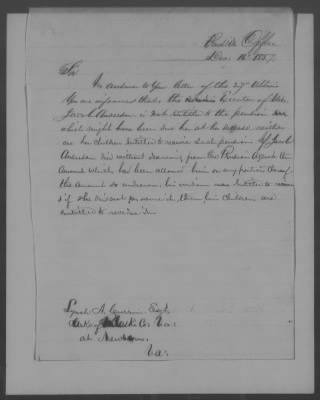 Pension Office
Dec 16th 1857.
Sir
In answer to Your letter of the 27th Ultimo
You are informed that the Executor of Mrs.
Jacob Anderson is not entitled to the pension
which might have been due her at her decease, neither
are her Children Entitled to receive such pension If Jacob
Anderson died without drawing from the Pension Agent the
Amount which had been allowed him or any portion thereof
the Amount so undrawn his widow was Entitled to receive
& if she did not receive it, then his Children are
entitled to receive it.
Lynch A. Esqr.
Co: Va:
at Newbern.
Va: